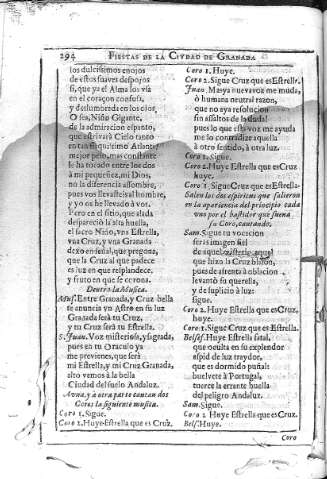 294 FIESTAS DE LA CIVDAD DE GRANADA
los dulcissimos enojos
de estos suaves despojos
si, que ya el Alma los via
en el coraçon confusi,
y deslumbrada en los
O sea, Niño Gigante,
de la admiracion espanto,
que estrivarà Cielo
en tan Atlante,
mejor pelo, mas constante
le ha tocado entre los dos
à mi pequeñez, mi Dios,
no la diferencia assombre,
pues vos llevasteis al hombre,
y yo os he llevado à vos.
Pero en el sitio, que alada
despareciò la alta huella,
el sacro Niño, vna Estrella,
vna Cruz, y vna Granada
dexo en señal, que pregona,
que la Cruz al que padece
es luz en que resplandece,
y fruto en que se corona.
Dentro la Musica.
Entre Granada, y Cruz bella
se anuncia vn Astro en su luz
Granada serà tu Cruz,
y tu Cruz serà tu Estrella.
S. Juan. Voz misteriosa, y sagrada,
pues en tu Oraculo ya
me previenes, que serà
mi Estrella, y mi Cruz Granada,
alto vamos à la bella
Ciudad del suelo Andaluz.
A vna, y à otra parte cantan dos
Coros la siguiente musica.
Coro 1. Sigue.
Coro 2. Huye Estrella que es Cruz.
Coro 1. Huye.
Coro 2. Sigue Cruz que es Estrella.
Juan. Mas ya nueva voz me muda,
ò humana neutral razon,
que no aya resolucion
sin assaltos de la duda!
pues lo que esta voz me ayuda
me lo contradize aquella
à otro sentido, à otra luz.
Coro 1. Sigue.
Coro 2. Huye Estrella que es Cruz
huye.
Coro 1. Sigue Cruz que es Estrella
Salen los dos espiritus que salieron
en la apariencia del principio cada
uno por el bastidor que suena
su Coro, cantando.
Sam. Sigue tu vocacion
seràs imagen fiel
de aquel misterio, aquel
que hizo la Cruz blason,
pues de afrenta à oblacion
levantò su querella,
y de suplicio à luz
sigue.
Coro 2. Huye Estrella que es Cruz,
huye.
Coro 1. Sigue Cruz que es Estrella.
Belsf. Huye Estrella fatal,
que oculta en su explendor
aspid de luz traydor,
que es dormido puñal:
buelvete à Portugal,
tuerce la errante huella
del peligro Andaluz.
Sam. Sigue.
Coro 2. Huye Estrella que es Cruz.
Belsf. Huye.
Coro